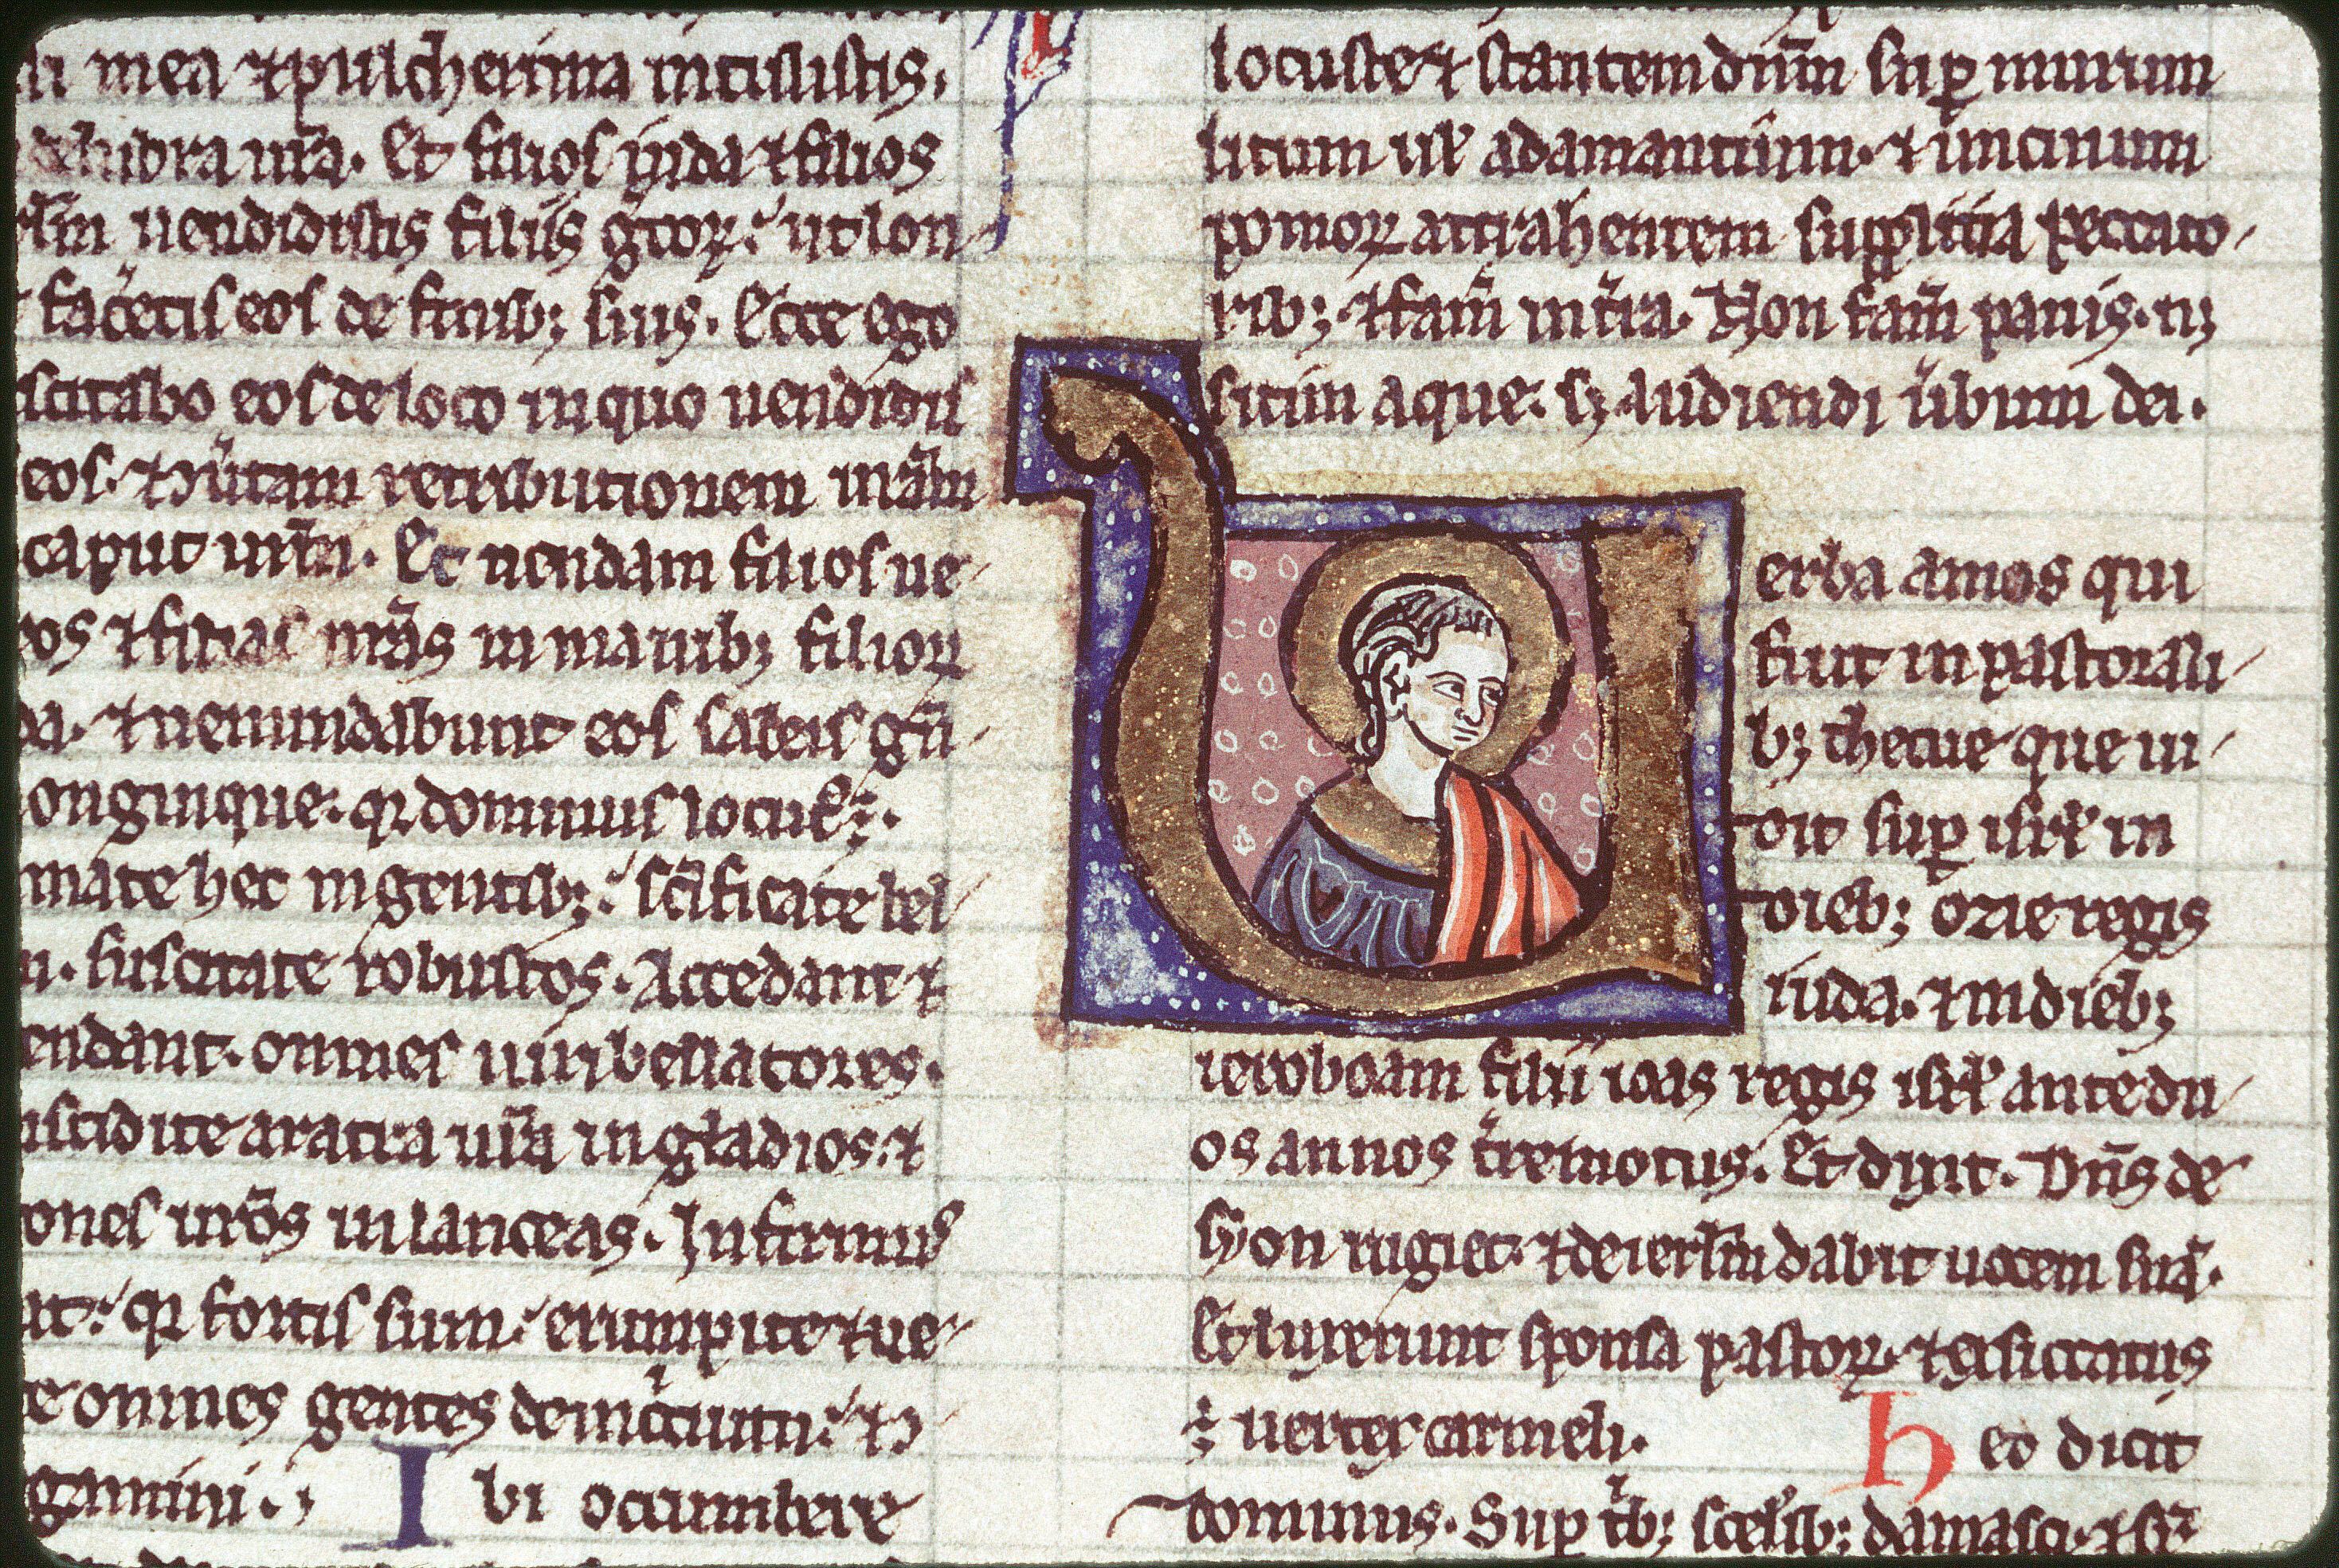 mea ⁊ pulcherima intulistis.
delubra ur̄a. Et filios iuda ⁊ filios
ierl̄m uendidistis filiis grecoꝝ. ut lon
faceretis eos de finibꝫ suis. Ecce ego
suscitabo eos de loco in quo uendidistis
eos. ⁊ ꝯuertam retributionem ur̄am in
caput ur̄m. Et uendam filios ue-
ros ⁊ filias ur̄as in manibꝫ filioꝝ
iuda. ⁊ uenundabunt eos sabeis gn̄ti
longinque. qꝛ dominus locutꝰ ē.
mate hec in gentibꝫ. sc̄ificate bel
suscitate robustos. Accedant ⁊
endant. omnes uiri bellatores.
ncidite aratra ur̄a in gladios. ⁊
ones ur̄os in lanceas. Infirmus
at. qꝛ fortis sum. erumpite ⁊ ue-
te omnes gentes de in circuitu. ⁊ ꝯ
gamini. I bi occumbere
locuste ⁊ stantem dn̄m sup̱ murum
litum uꝉ adamantinum. ⁊ uncinum
pomoꝝ attrahentem supplicia peccato-
ribꝫ. ⁊ famē in t̄ra. Non famē panis. nꝫ
sitim aque. sꝫ audiendi uerbum dei.
U erba amos qui
fuit in pastorali-
bꝫ thecue que ui-
dit sup̱ isrl̄ in
diebꝫ ozie regis
iuda. ⁊ in diebꝫ
ieroboam filii ioas regis isrl̄ ante du-
os annos t̄remotus. Et dixit. Dn̄s de
syon rugiet. ⁊ de ierl̄m dabit uocem suā.
Et luxerunt sponsa pastoꝝ. ⁊ exsiccatus
ē uertex carmeli. h ec dicit
dominus. Sup̱ tribꝫ sceleribꝫ damasci. ⁊ sr̄